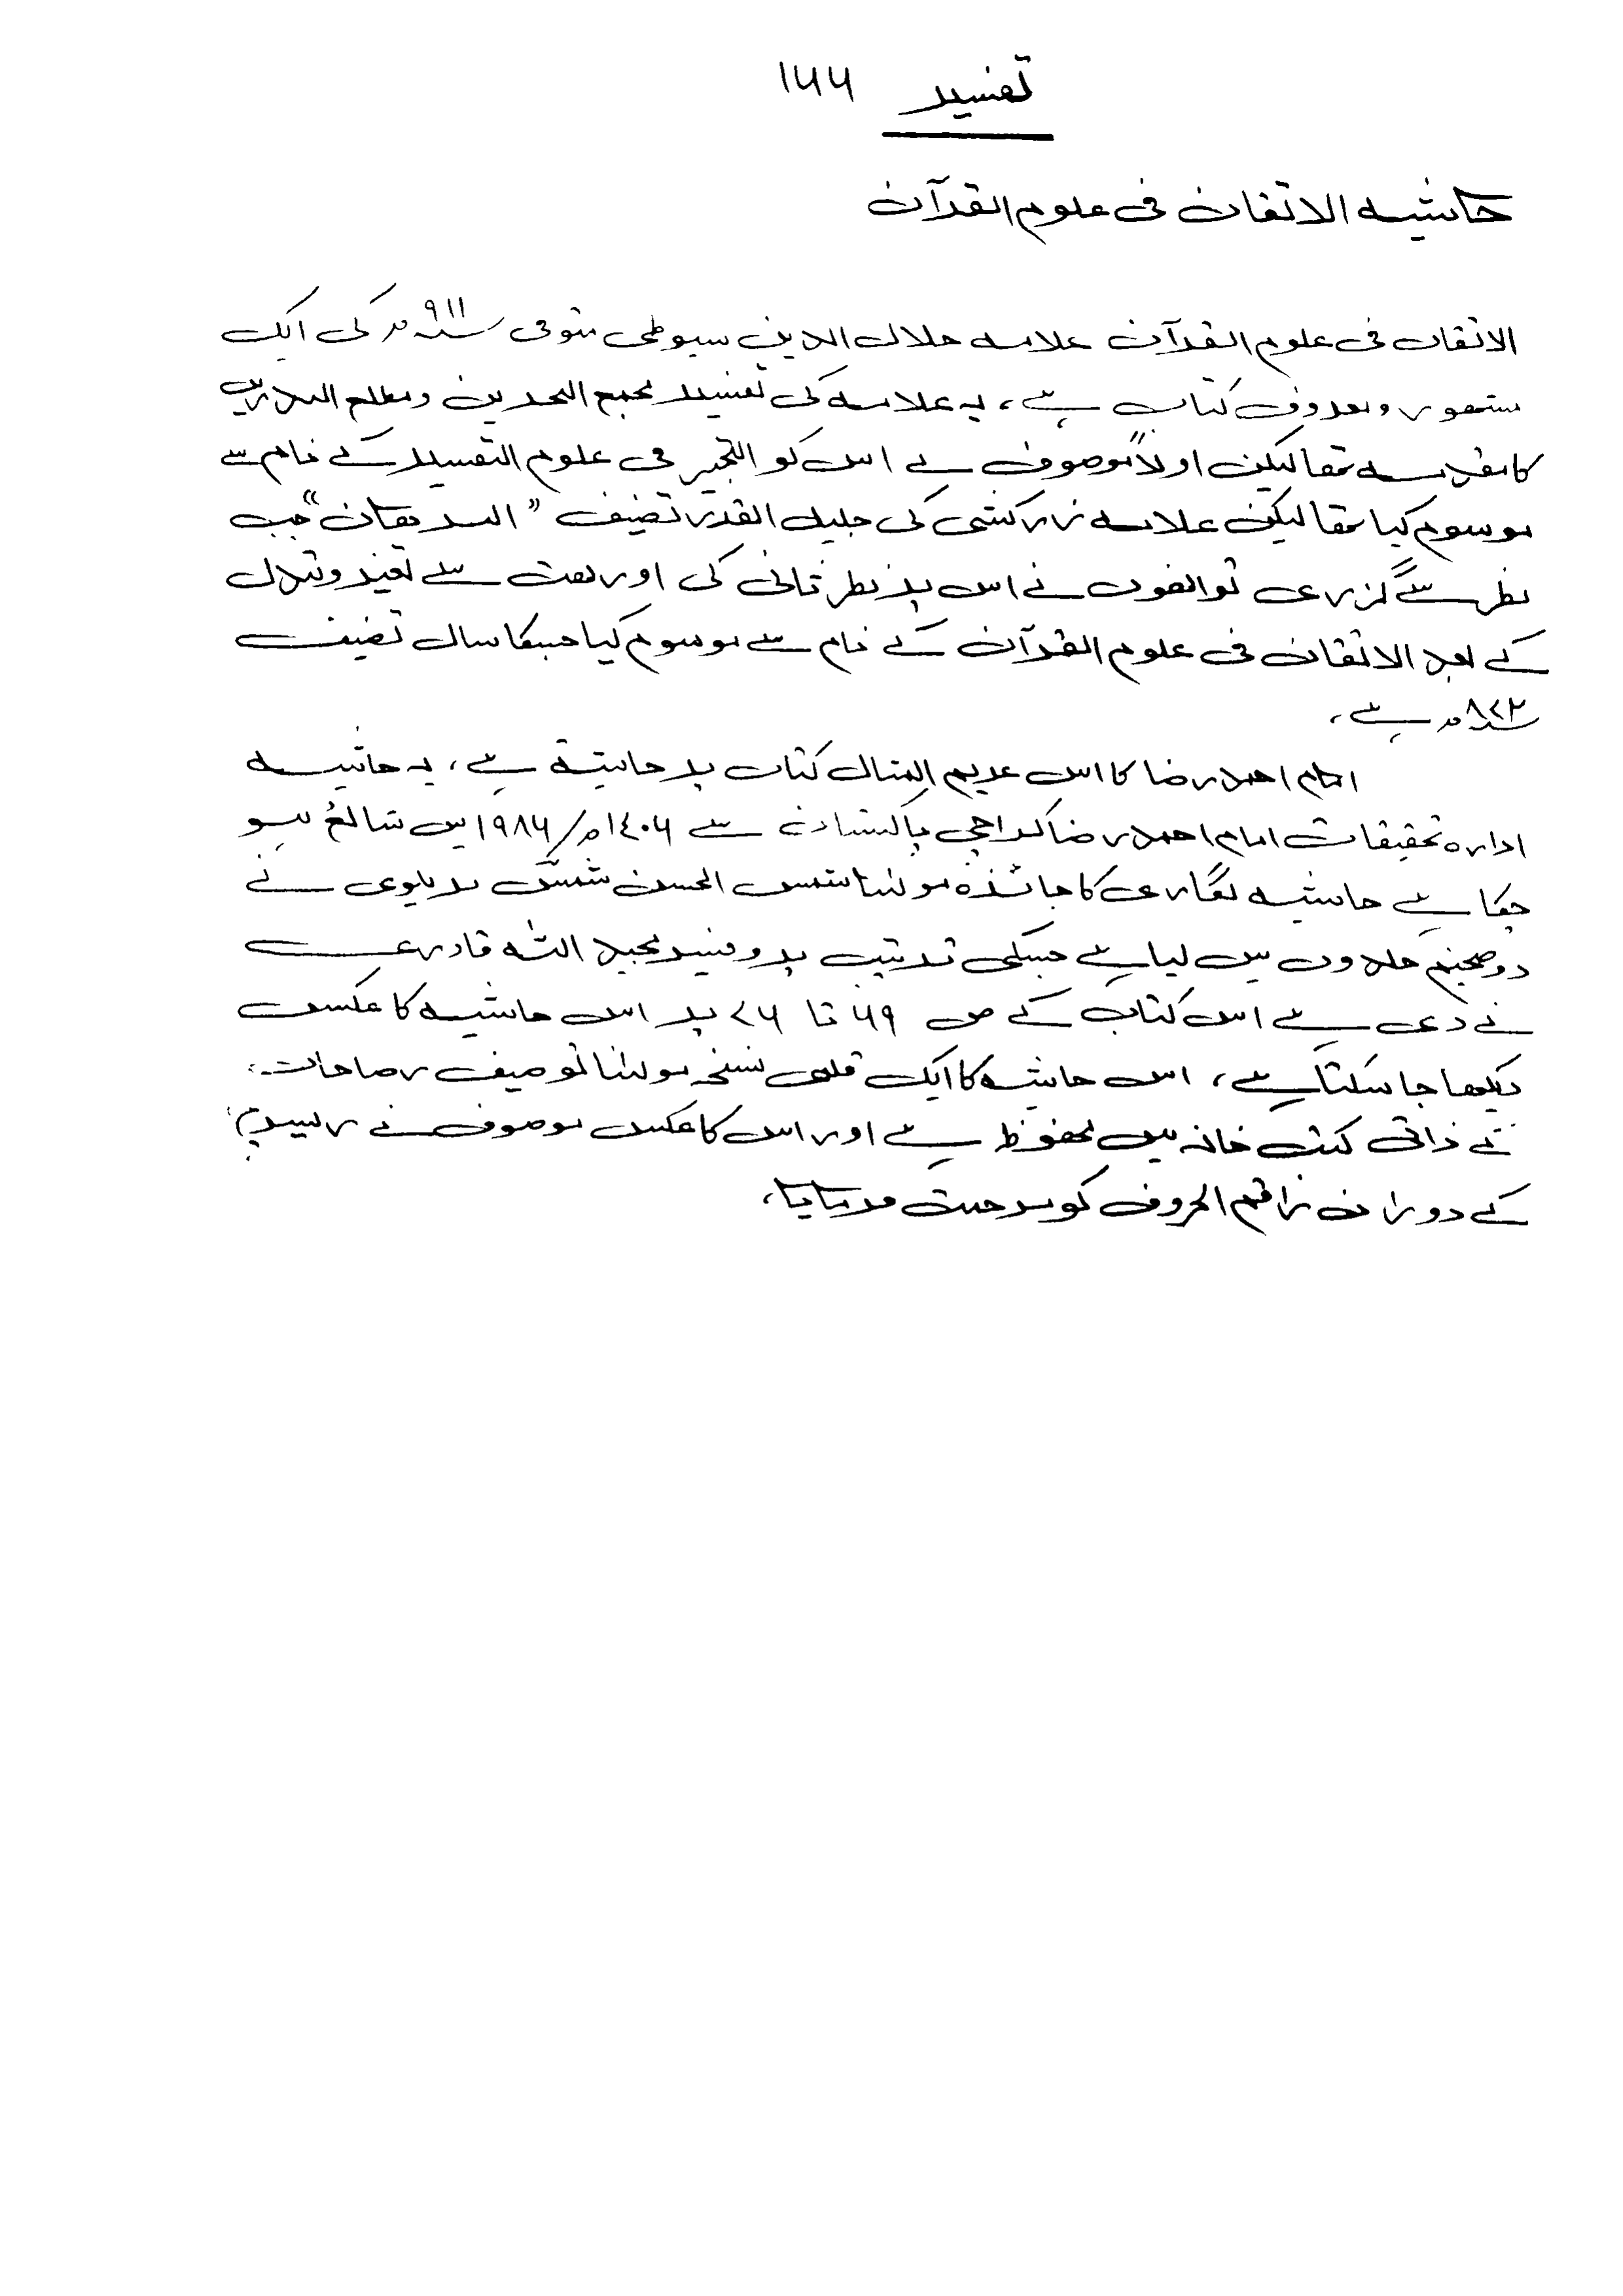 تفسیر ۱۶۶
حاشیہ الاتقان فی علوم القرآن
الاتقان فی علوم القرآن علامہ جلال الدین سیوطی متوفی ۹۱۱ھ کی ایک
مشہور و معروف کتاب ہے، یہ علامہ کی تفسیر مجمع البحرین و مطلع البدرین
کا مقدمہ تھا لیکن اولاً موصوف نے اس کو التحبیر فی علوم التفسیر کے نام سے
موسوم کیا تھا لیکن علامہ زرکشی کی جلیل القدر تصنیف "البرھان" جب
نظر سے گزری تو انھوں نے اس پر نظر ثانی کی اور بہت سے تغیر و تبدل
کے بعد الاتقان فی علوم القرآن کے نام سے موسوم کیا جسکا سال تصنیف
۸۷۲ھ ہے،
امام احمد رضا کا اس عدیم المثال کتاب پر حاشیہ ہے، یہ حاشیہ
ادارہ تحقیقات امام احمد رضا کراچی پاکستان سے ۱۴۰۶ھ/۱۹۸۶ میں شائع ہو
چکا ہے حاشیہ نگاری کا جائزہ مولٰنا شمس الحسن شمس بریلوی نے
دو ضخیم جلدوں میں لیا ہے جسکی ترتیب پروفیسر مجید اللہ قادری
نے دی ہے اس کتاب کے ص ۶۹ تا ۷۶ پر اس حاشیہ کا عکس
دیکھا جا سکتا ہے، اس حاشیہ کا ایک قلمی نسخہ مولٰنا توصیف رضا خاں
کے ذاتی کتب خانہ میں محفوظ ہے اور اس کا عکس موصوف نے ریسرچ
کے دوران راقم الحروف کو مرحمت فرمایا،